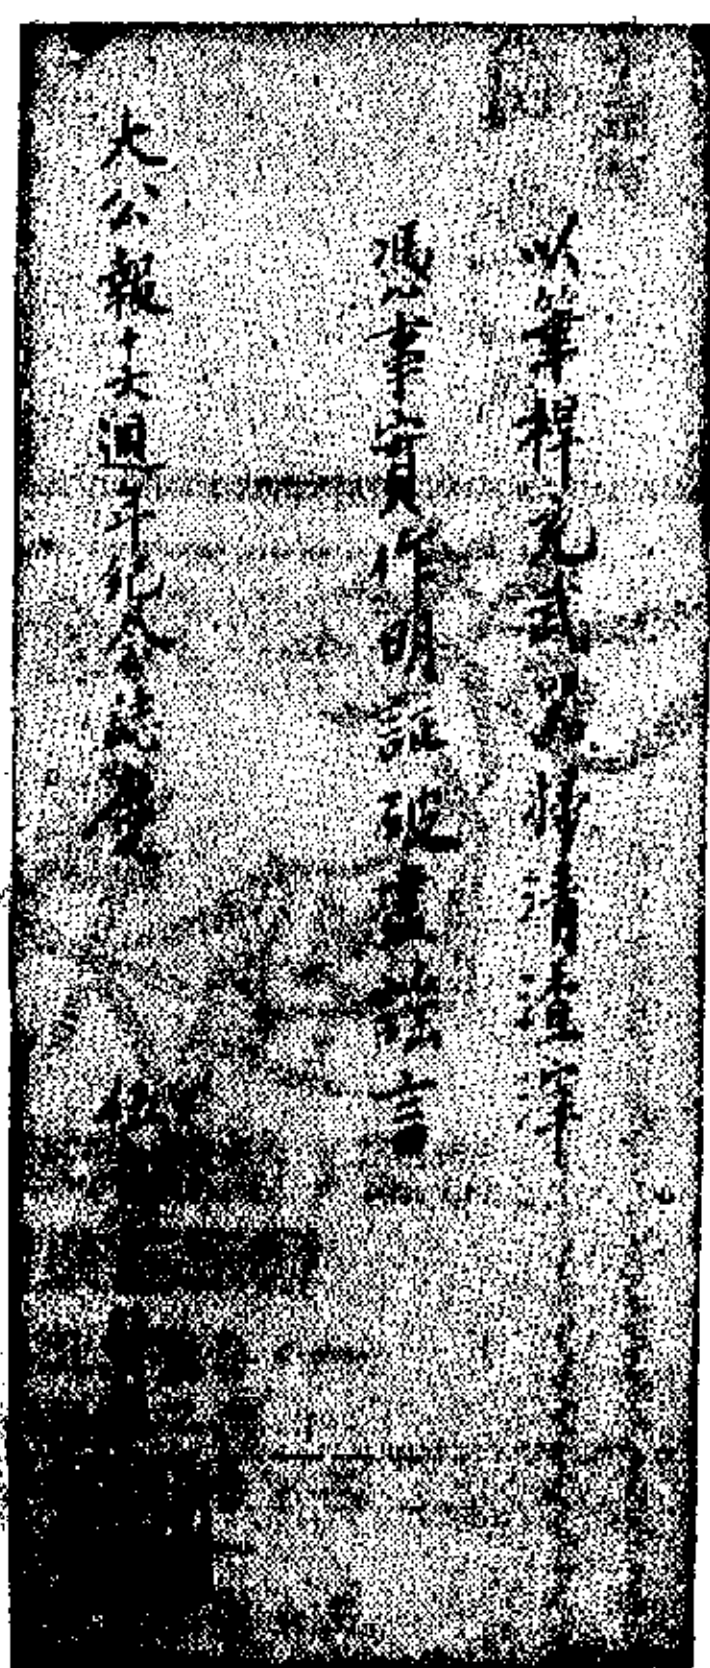 以筆桿尅武器掃清渣滓
憑事實作明証破盡謠言
大公報十六週年紀念誌慶